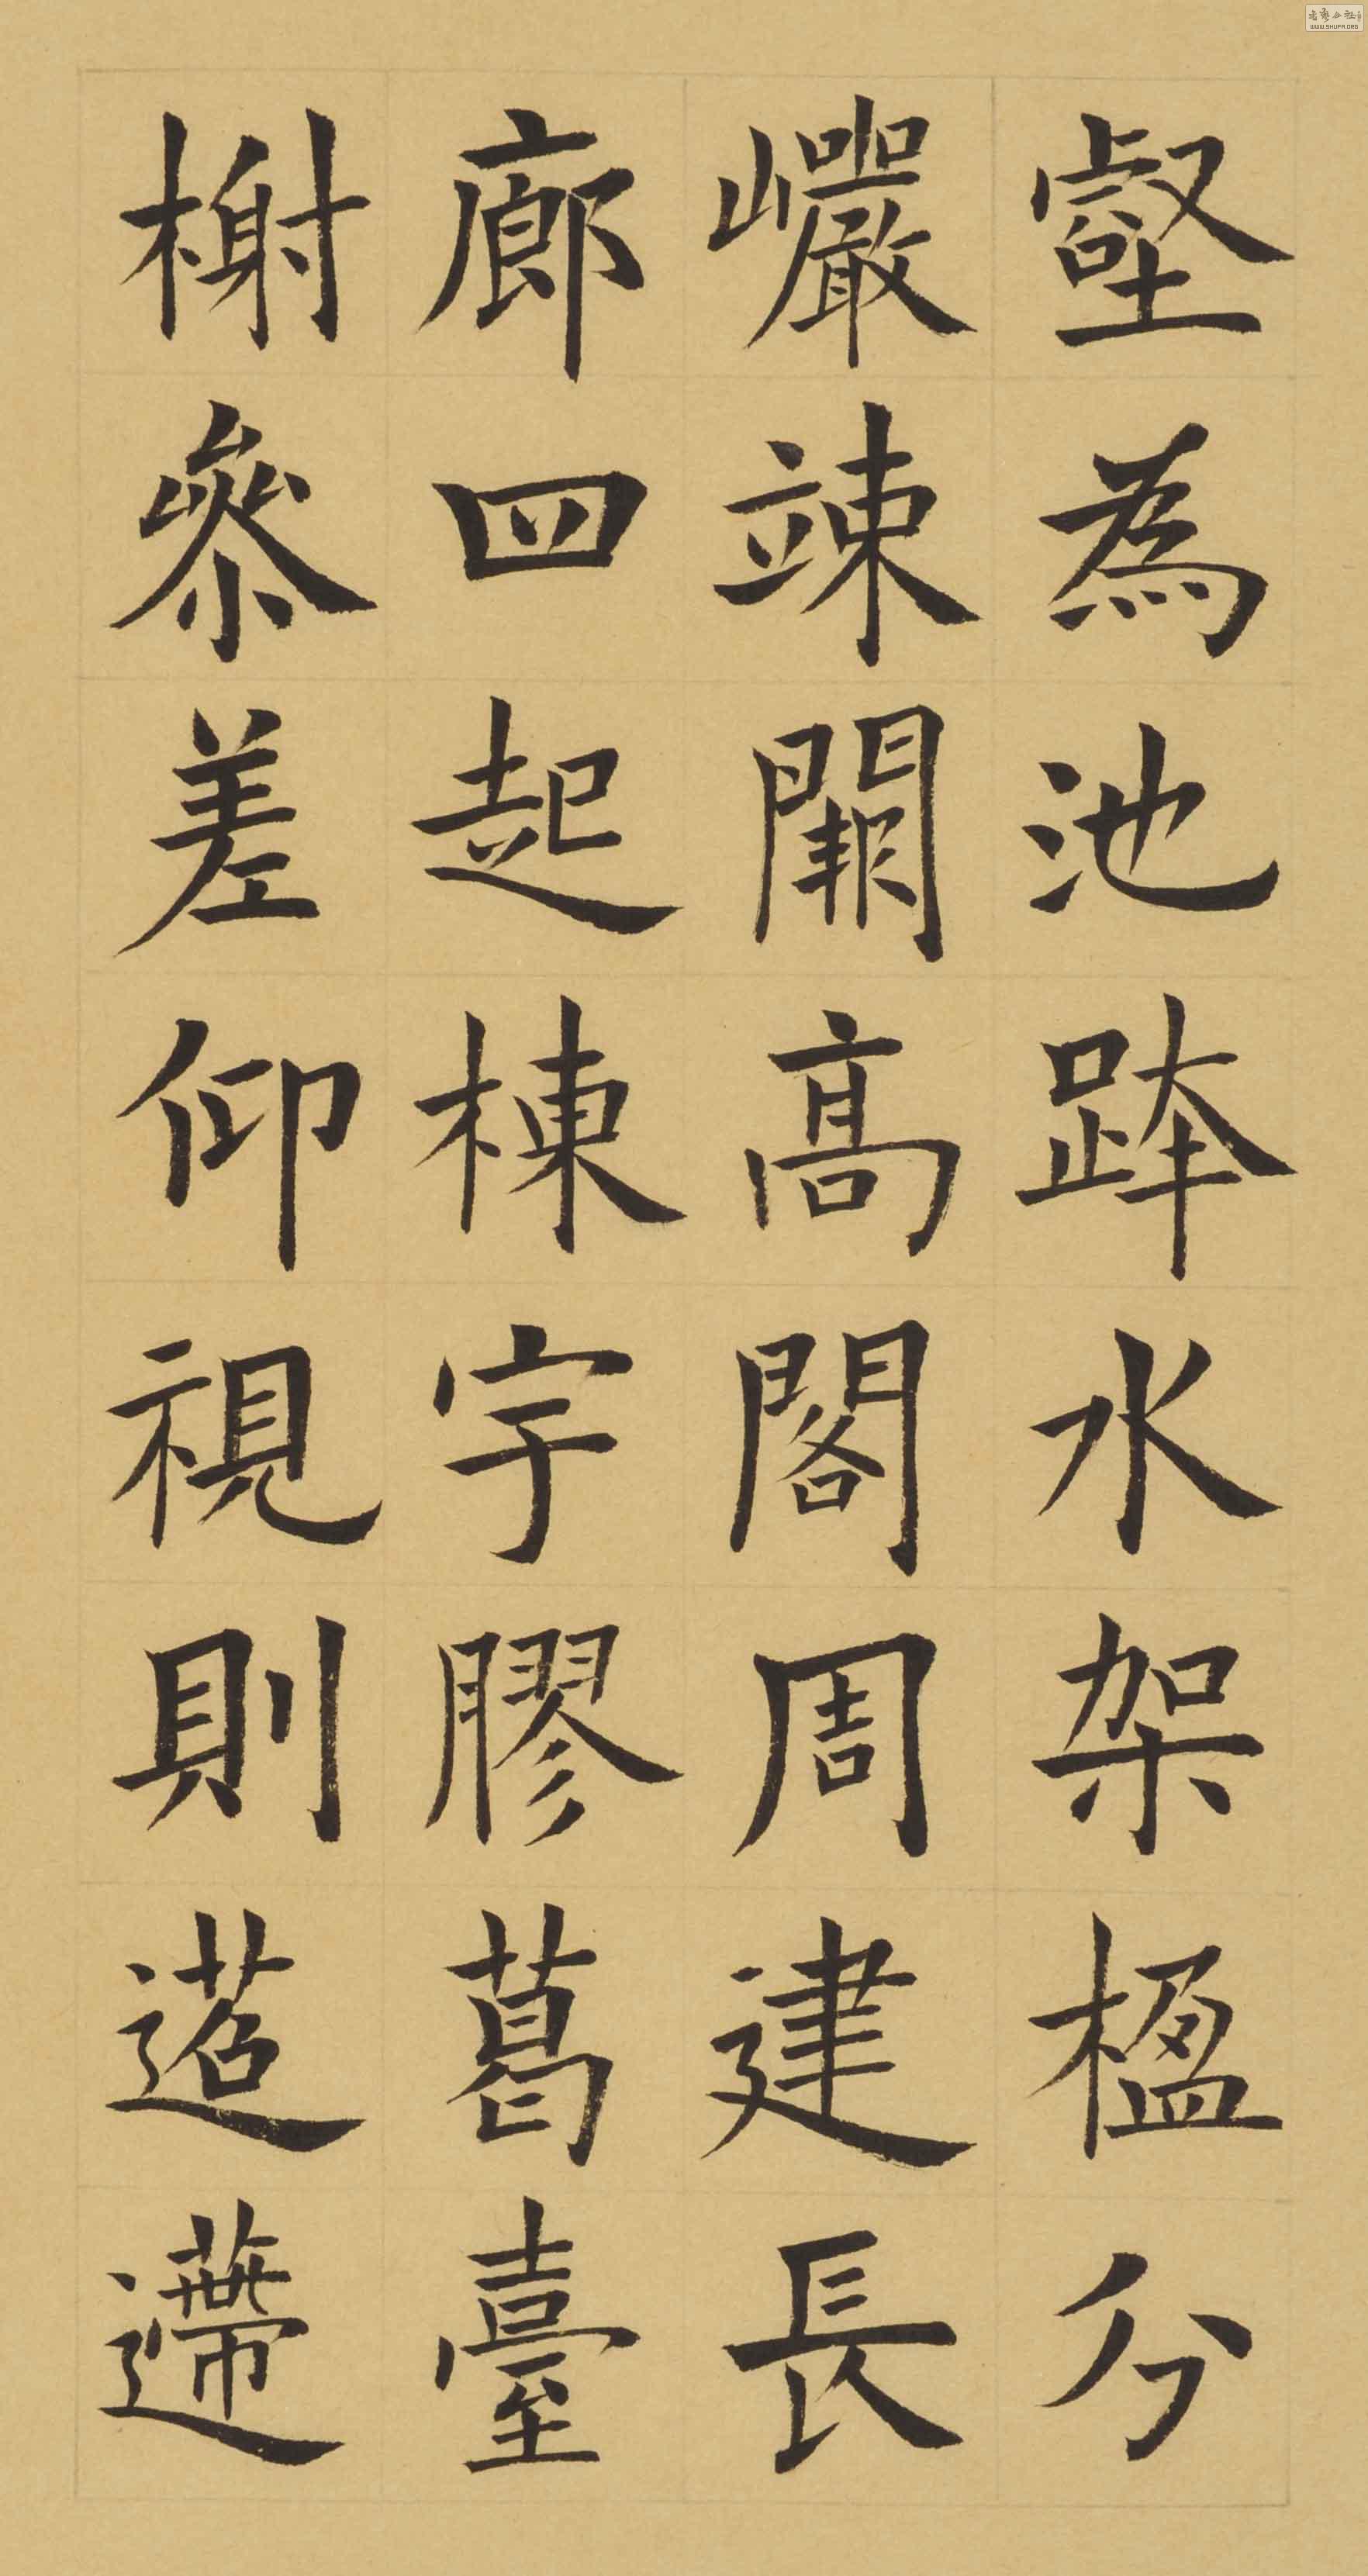 壑為池跨水架楹分
巖竦闕高閣周建長
廊四起棟宇膠葛臺
榭參差仰視則迢遰
WWW.SHUFA.ORG